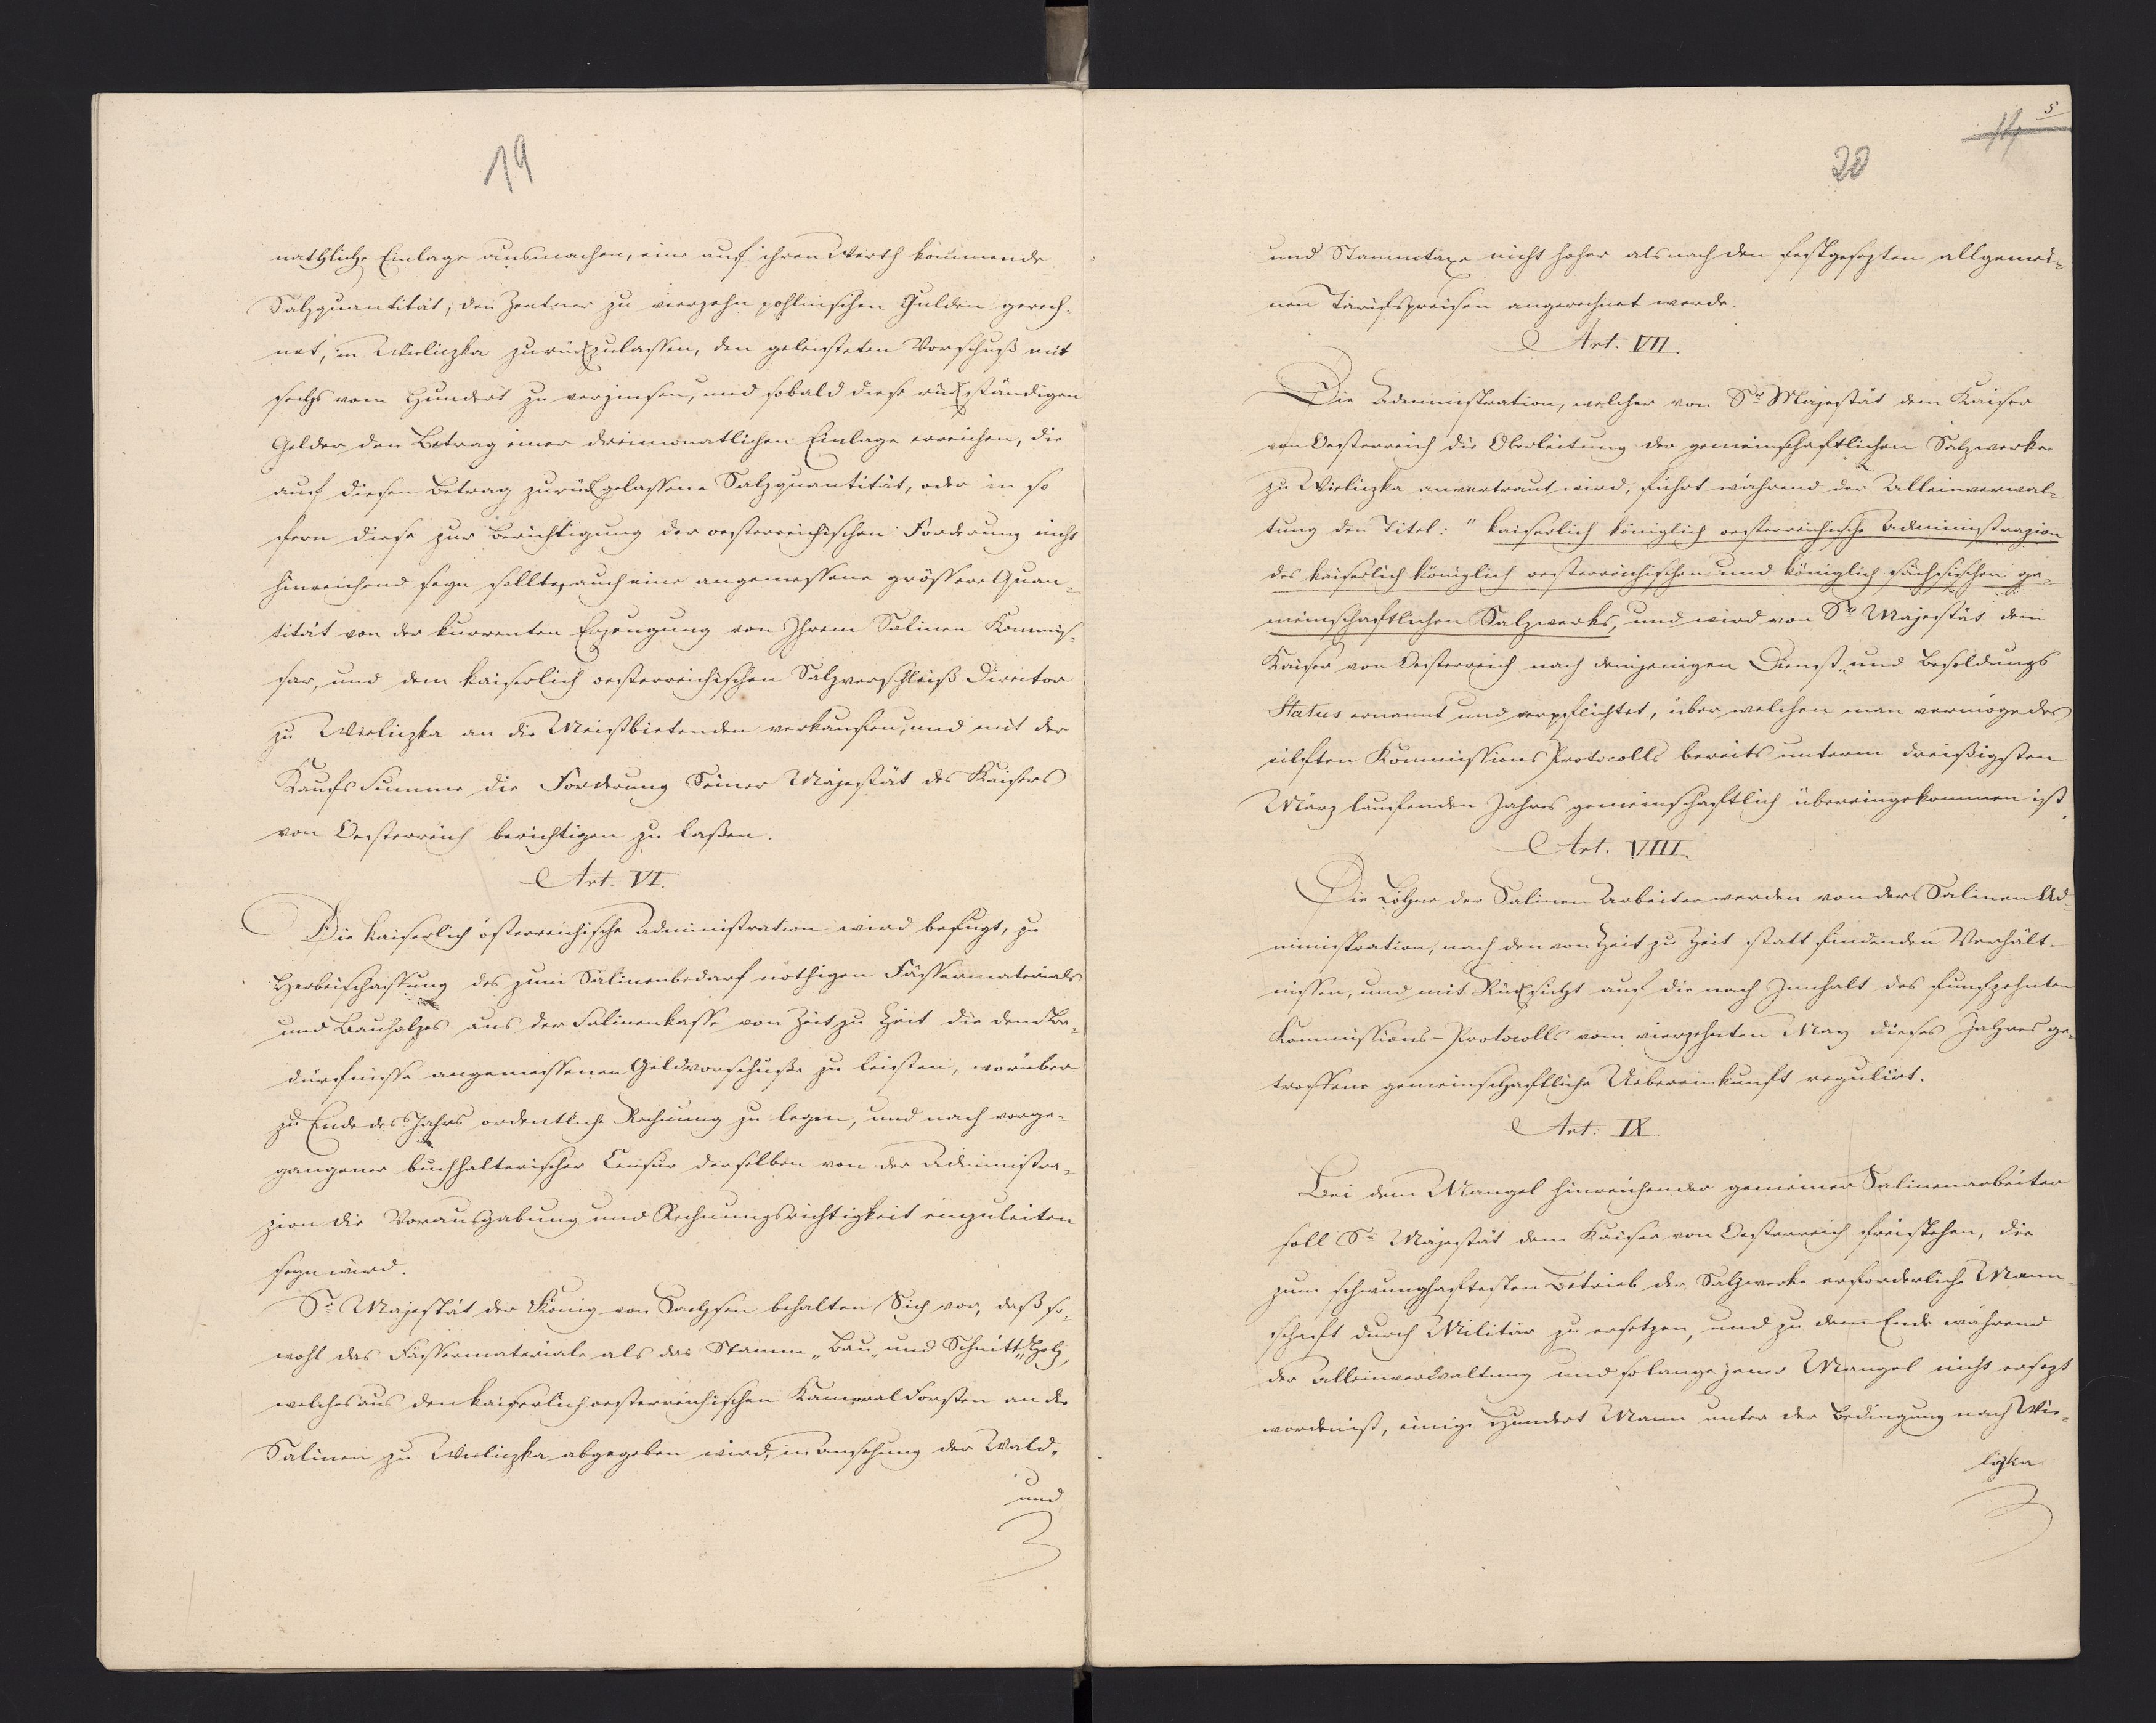 19
nathliche Einlage ausmachen, eine auf ihren Werth kommende
Salzquantität, den Zentner zu vierzehn pohlnischen Gulden gerech-
net, in Wieliczka zurückzulassen, den geleisteten Vorschuß mit
sechs vom Hundert zu verzinsen, und sobald diese rückständigen
Gelder den Betrag einer dreimonatlichen Einlage erreichen, die
auf diesen Betrag zurückgelassene Salzquantität, oder in so
fern diese zur Berichtigung der oesterreichischen Forderung nicht
hinreichend seyn sollte, auch eine angemessene grössere Quan-
tität von der kurrenten Erzeugung von Ihrem Salinen Kommis-
sar, und dem kaiserlich oesterreichischen Salzverschleiß Director
zu Wieliczka an die Meistbietenden verkaufen, und mit der
Kaufs Summe die Forderung Seiner Majestät des Kaisers
von Oesterreich berichtigen zu laßen.
Art. VI.
Die kaiserlich österreichische Administration wird befugt, zu
Herbeischaffung des zum Salinenbedarf nöthigen Fässermaterials
und Bauholzes aus der Salinenkasse von Zeit zu Zeit die dem Be-
dürfnisse angemessenen Geldvorschüße zu leisten, worüber
zu Ende des Jahrs ordentliche Rechnung zu legen, und nach vorge-
gangener buchhalterischer Censur derselben von der Administra-
zion die Verausgabung und Rechnungsrichtigkeit einzuleiten
seyn wird.
Sr Majestät der König von Sachsen behalten Sich vor, daß so-
wohl das Fässermateriale als das Stamm- Bau- und Schnitt-Holz,
welches aus den kaiserlich oesterreichischen Kameral Forsten an die
Salinen zu Wieliczka abgegeben wird, in Ansehung der Wald-
und
5
14
20
und Stammtaxe nicht hoher als nach den festgesezten allgemei-
nen Tarifspreisen angerechnet werde.
Art. VII.
Die Administration, welcher von Sr Majestät dem Kaiser
von Oesterreich die Oberleitung der gemeinschaftlichen Salzwerke
zu Wieliczka anvertraut wird, führt während der Alleinverwal-
tung den Titel: " kaiserlich königlich oesterreichische Administrazion
des kaiserlich königlich oesterreichischen und königlich sächsischen ge-
meinschaftlichen Salzwerks, und wird von Sr Majestät dem
Kaiser von Oesterreich nach demjenigen Dienst- und Besoldungs
Status ernannt und verpflichtet, über welchen man vermöge des
eilften Kommissions Protocolls bereits unterm dreißigsten
März laufenden Jahres gemeinschaftlich übereingekommen ist.
Art. VIII.
Die Löhne der Salinen Arbeiter werden von der Salinen Ad-
ministration, nach den von Zeit zu Zeit statt findenden Verhält-
nissen, und mit Rücksicht auf die nach Innhalt des funfzehnten
Kommissions-Protocolls vom vierzehnten May dieses Jahres ge-
troffene gemeinschaftliche Uebereinkunft regulirt.
Art. IX.
Bei dem Mangel hinreichender gemeiner Salinenarbeiter
soll Sr Majestät dem Kaiser von Oesterreich freistehen, die
zum schwunghaftesten Betrieb der Salzwerke erforderliche Mann-
schaft durch Militär zu ersetzen, und zu dem Ende während
der Alleinverwaltung und solange jener Mangel nicht ersezt
worden ist, einige Hundert Mann unter der Bedingung nach Wie-
liczka